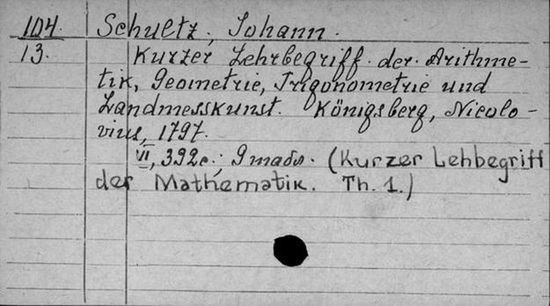 104. Schultz, Johann.
13. Kurzer Lehrbegriff der Arithme-
tik, Geometrie, Trigonometrie und
Landmesskunst. Königsberg, Nicolo-
vius, 1797.
VI, 392c.; 9 Mads. (Kurzer Lehbegriff
der Mathematik. Th. 1.)